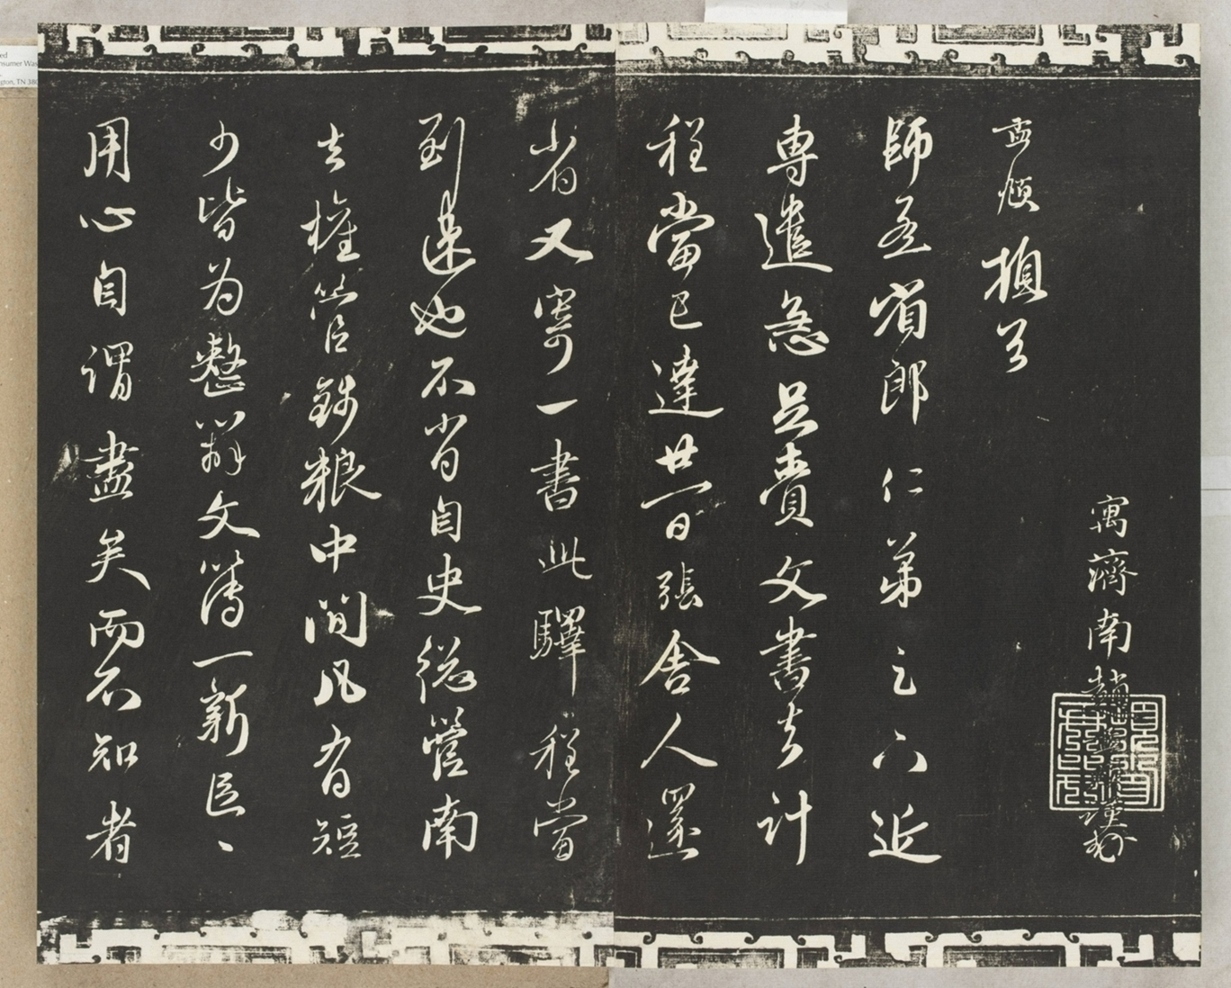 寓濟南趙孟頫謹封
孟頫頓首
師孟省郎仁弟足下近
專遣急足賫文書去計
程當已達廿一日張舍人還
省又寄一書此驛程當
到速也不肖自史總管南
去權管臣錢粮中間凡有短
少皆为整辦文簿一新區〻
用心自謂盡矣而不知者